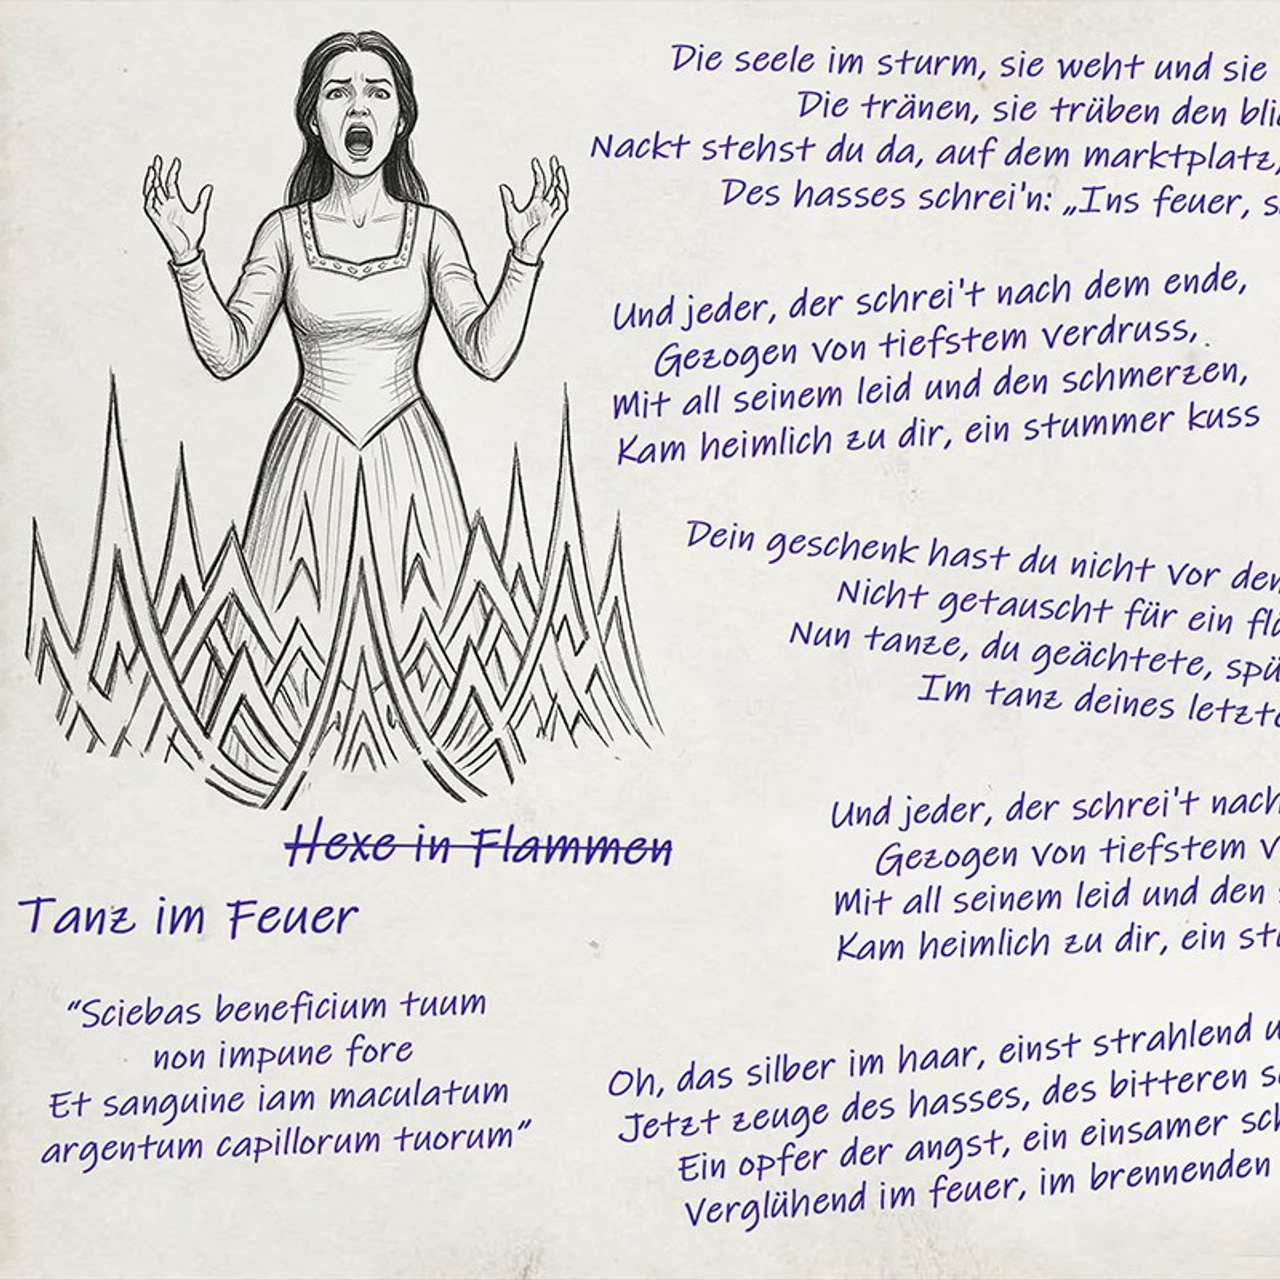 Die seele im sturm, sie weht und sie
Die tränen, sie trüben den
Nackt stehst du da, auf dem marktplatz,
Des hasses schrei'n: „Ins feuer,
Und jeder, der schrei't nach dem ende,
Gezogen von tiefstem verdruss,
Mit all seinem leid und den schmerzen,
Kam heimlich zu dir, ein stummer kuss
Dein geschenk hast du nicht vor
Nicht getauscht für ein
Nun tanze, du geächtete,
Im tanz deines
Und jeder, der schrei't
Gezogen von tiefstem
Mit all seinem leid und den
Kam heimlich zu dir, ein
Oh, das silber im haar, einst strahlend
Jetzt zeuge des hasses, des bitteren
Ein opfer der angst, ein einsamer
Verglühend im feuer, im brennenden
Hexe in Flammen
Tanz im Feuer
“Sciebas beneficium tuum
non impune fore
Et sanguine iam maculatum
argentum capillorum tuorum”